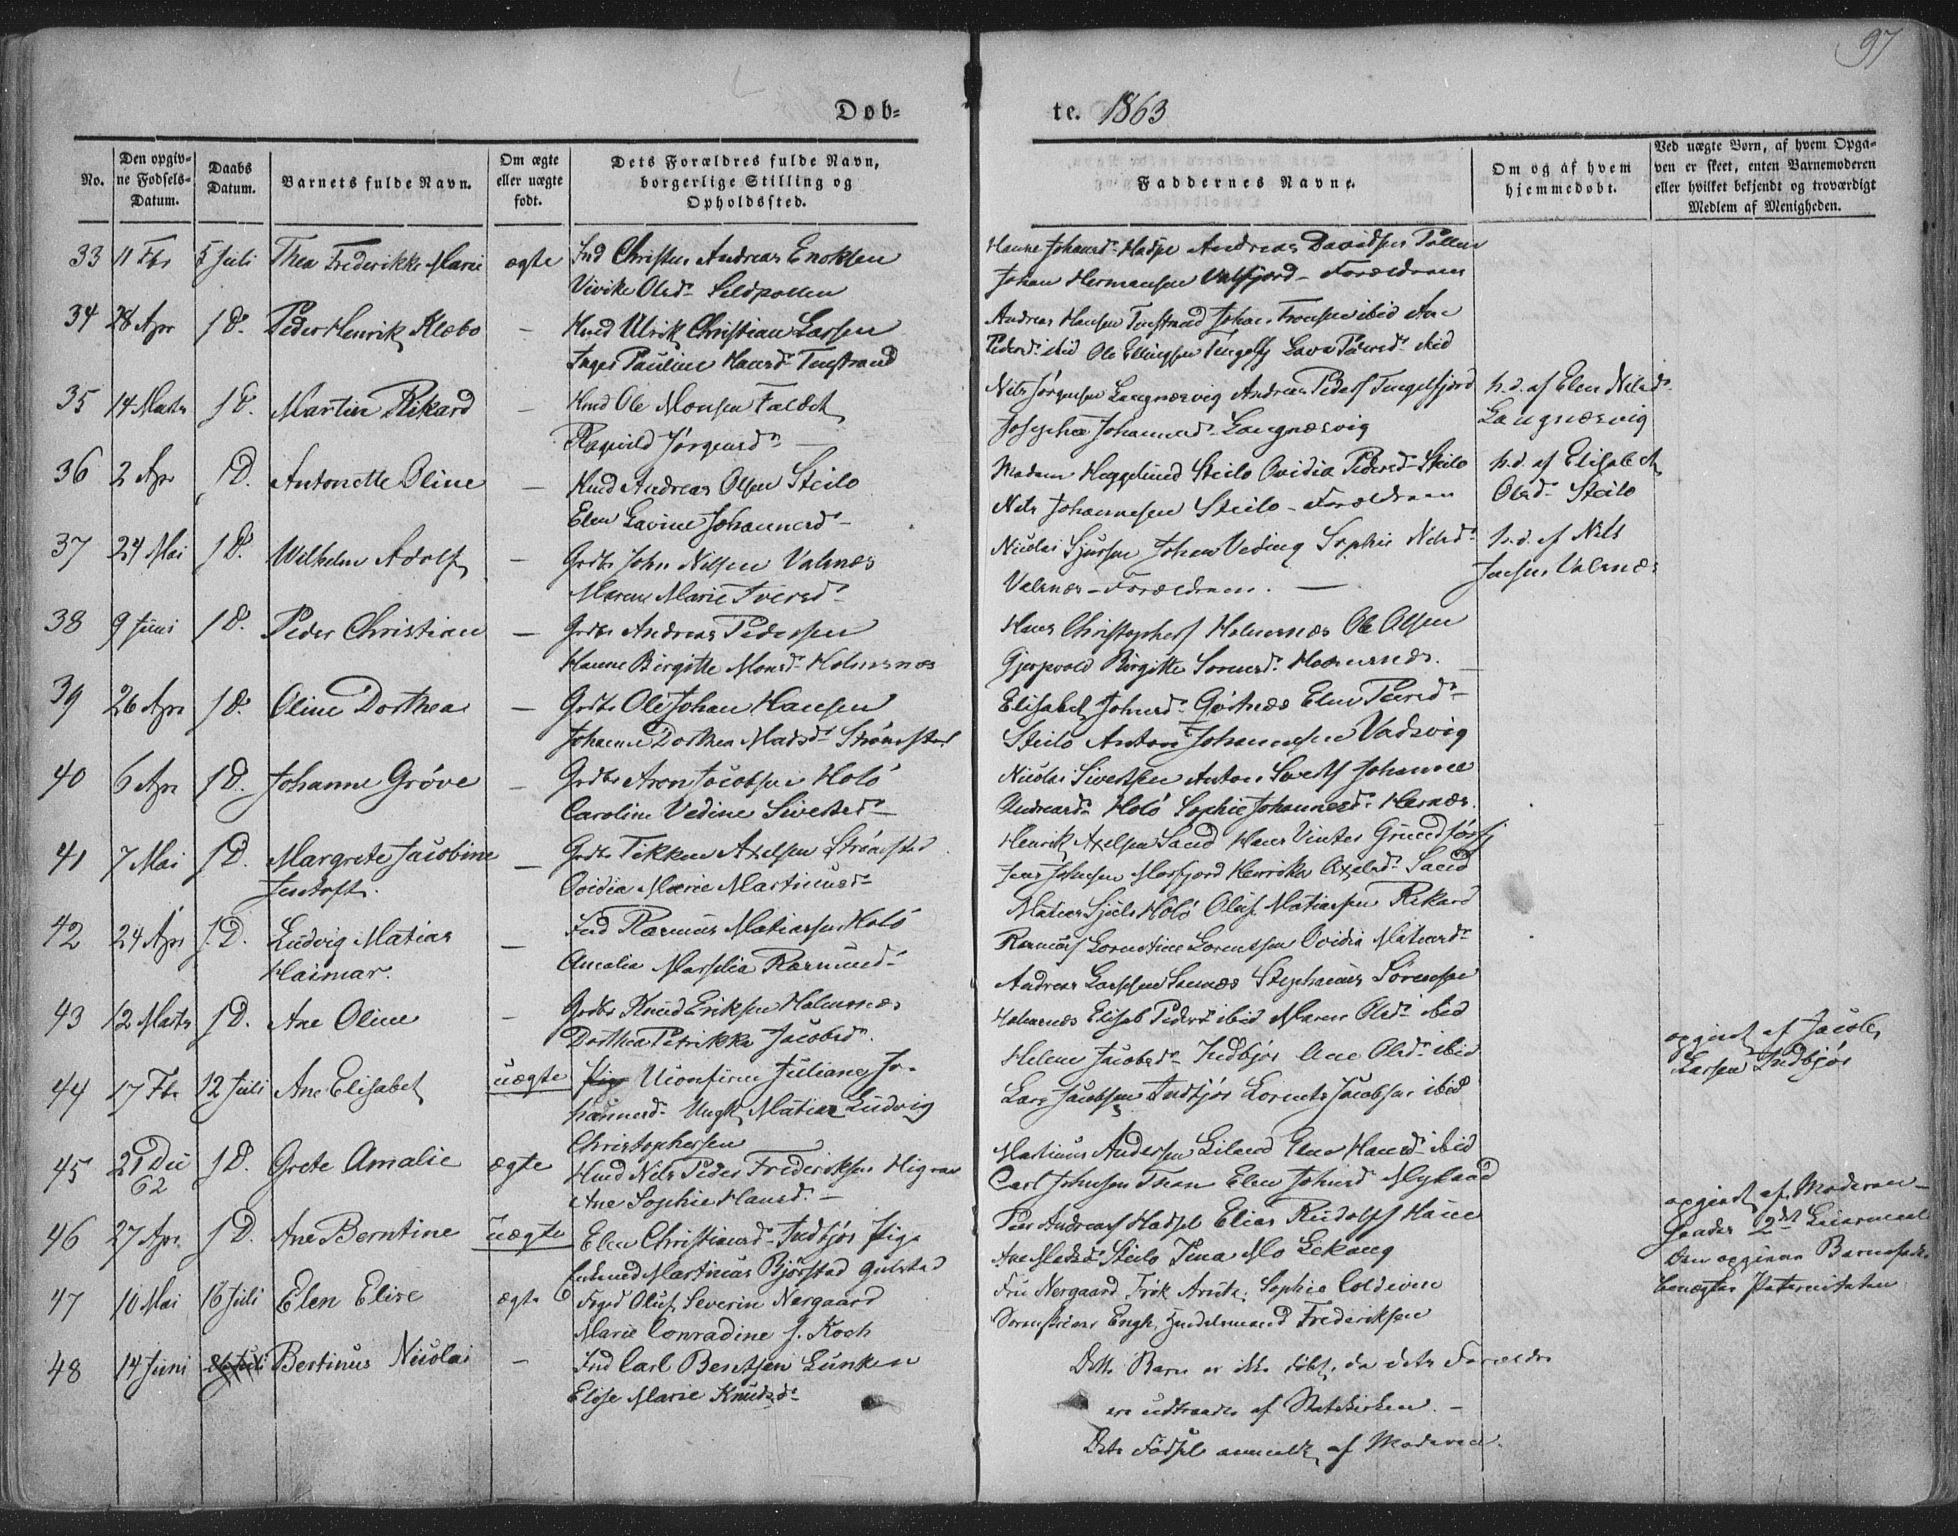 97
Døb-
te. 1863
No.
Den opgiv-
ne Fødsels-
Datum.
Daabs
Datum.
Barnets fulde Navn.
Om ægte
eller uægte
født.
Dets Forældres fulde Navn,
borgerlige Stilling og
Opholdssted.
Faddernes Navne.
Om og af hvem
hjemmedøbt.
Ved uægte Børn, af hvem Opga-
ven er skeet, enten Barnemoderen
eller hvilket bekjendt og troværdigt
Medlem af Menigheden.
33 11 Fbr 5 Juli Thea Frederikke Marie ægte Ind Christen Andreas Enoksen
Vivike Olsd. Seldpollen
Hanne Johansd. Hadsel Andreas Davidsen Pollen
Johan Hermansen Valfjord - Forældrene
34 28 Apr J D. Peder Henrik Klæbo - Hmd Ulrik Christian Larsen
Inger Pauline Hansd. Tenstrand
Andreas Hansen Tenstrand Johan ibid Ane
Pedersd. ibid Ole Ellingsen Lava Pedersd. ibid
35 14 Marts J D. Martin Rikard - Hmd Ole Monsen Faldet
Ragnild Jørgensd. -
Nils Jørgensen Langnæsvig Andreas Peders. Tengelfjord
Josepha Johannesd. Langnæsvig
h.d. af Elen Nilsd.
Langnæsvig
36 2 Apr J D. Antonette Oline - Hmd Andreas Olsen Steilo
Elen Lavine Johannesd. -
Madam Heggelund Steilo Ovidia Pedersd. Steilo
Nils Johannesen Steilo - Forældrene
h.d. af Elisabet
Olsd. Steilo
37 24 Mai J D. Wilhelm Adolf - Grdbr John Nilsen Valsnæs
Maren Marie Iversd. -
Nicolai Sjursen Johan Veding Sophie Nilsd.
Valsnæs - Forældrene. -
h.d. af Nils
Jensen Valsnæs
38 9 Juni J D. Peder Christian - Grdbr Andreas Pedersen
Hanne Birgitte Monsd. Holmsnæs
Hans Christophers. Holmsnæs Ole Olsen
Birgitte Sorensd. Holmsnæs. -
39 26 Apr J D. Oline Dorthea - Grdbr Ole Johan Hansen
Johanne Dorthea Madsd. Strømstad
Elisabet Johnsd. Elen Peersd. -
Steilo Anton Johannesen Vadsvig
40 6 Apr J D. Johanne Grøve - Grdbr Aron Jacobsen Holö
Caroline Vedine Sivertsd. -
Nicolai Sivertsen Anton Sivertsf Johanne
Andreasd. Holö Sophie Johannesd.
41 7 Mai J D. Margrete Jacobine
Jentoft.
- Grdbr Tikken Axelsen Strømstad
Ovidia Marie Martinusd. -
Henrik Axelsen Sand Hans Vinter
Jens Johnsen Morfjord Henrika Axelsd. Sand
42 24 Apr J D. Ludvig Matias
Haimar.
- Ind Rasmus Matiassen Holö
Amalia Marselia Rasmusd. -
Matias Holö Oluf Matiassen Rikard
Rasmus. Lorentine Lorentsen Ovidia Matiasd.
43 12 Marts J D. Ane Oline - Grdbr Knud Eriksen Holmsnæs
Dorthea Petrikke Jacobsd.
Andreas Larsen Stephanus Sörensen
Holmsnæs Elisab. Pedersd. ibid Maren Olsd. ibid
44 17 Fbr 12 Juli Ane Elisabet uægte Uconfirm Juliane Jo-
hannesd. Ungk Matias Ludvig
Christophersen
Helene Jacobsd. Indbjør Ane Olsd. ibid
Lars Jacobsen Indbjør Lorents Jacobsen ibid
opgivet af Jacob
Larsen Indbjør
45 21 Dec
62
J D. Grete Amalie ægte Hmd Nils Peder Frederiksen
Ane Sophie Hansd. -
Martinus Andersen Eiland Elen Hansd. ibid
Carl Johnsen Elen Johnsd.
46 27 Apr. J D. Ane Berntine uægte Elen Christiansd. Indbjør Pige
Martinus Bjørstad Gulstad
Peer Andreas. Hadsel Elias Rudolfs.
Ane Madsd. Steilo Tina Mo
opgivet af Moderen -
2det
Den opgivne Barnefader
benægter Paterniteten
47 10 Mai 16 Juli Elen Elise ægte Foged Oluf Severin Nergaard
Marie Conradine f. Koch
Fru Nørgaard Frøk Sophie Coldevin
Engh Handelsmand Frederiksen
48 14 Juni Bertinus Nicolai - Ind Carl Bentsen Lunken
Elise Marie Knudsd. -
Dette Barn er ikke døbt, da dets Forældre
ere udtraadte af Statskirken. -
Dets Fødsel anmeldt af Moderen.